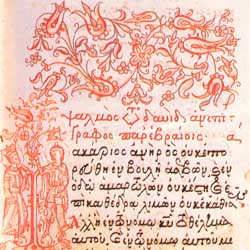 ψαλμὸς τῷ δαυὶδ ἀνεπί
γραφος παρ' ἑβραίοις α
ακάριος ἀνὴρ ὃς οὐκ ἐπο
ρεύθη ἐν βουλῇ ἀσεβῶν, καὶ ἐν
ὁδῷ ἁμαρτωλῶν οὐκ ἔστη καὶ ἐ
πὶ καθέδρα λοιμῶν οὐκ ἐκάθισε
Ἀλλ' ἢ ἐν τῷ νόμῳ κυ τὸ θέλημα
αὐτοῦ, καὶ ἐν τῷ νόμῳ αὐτοῦ